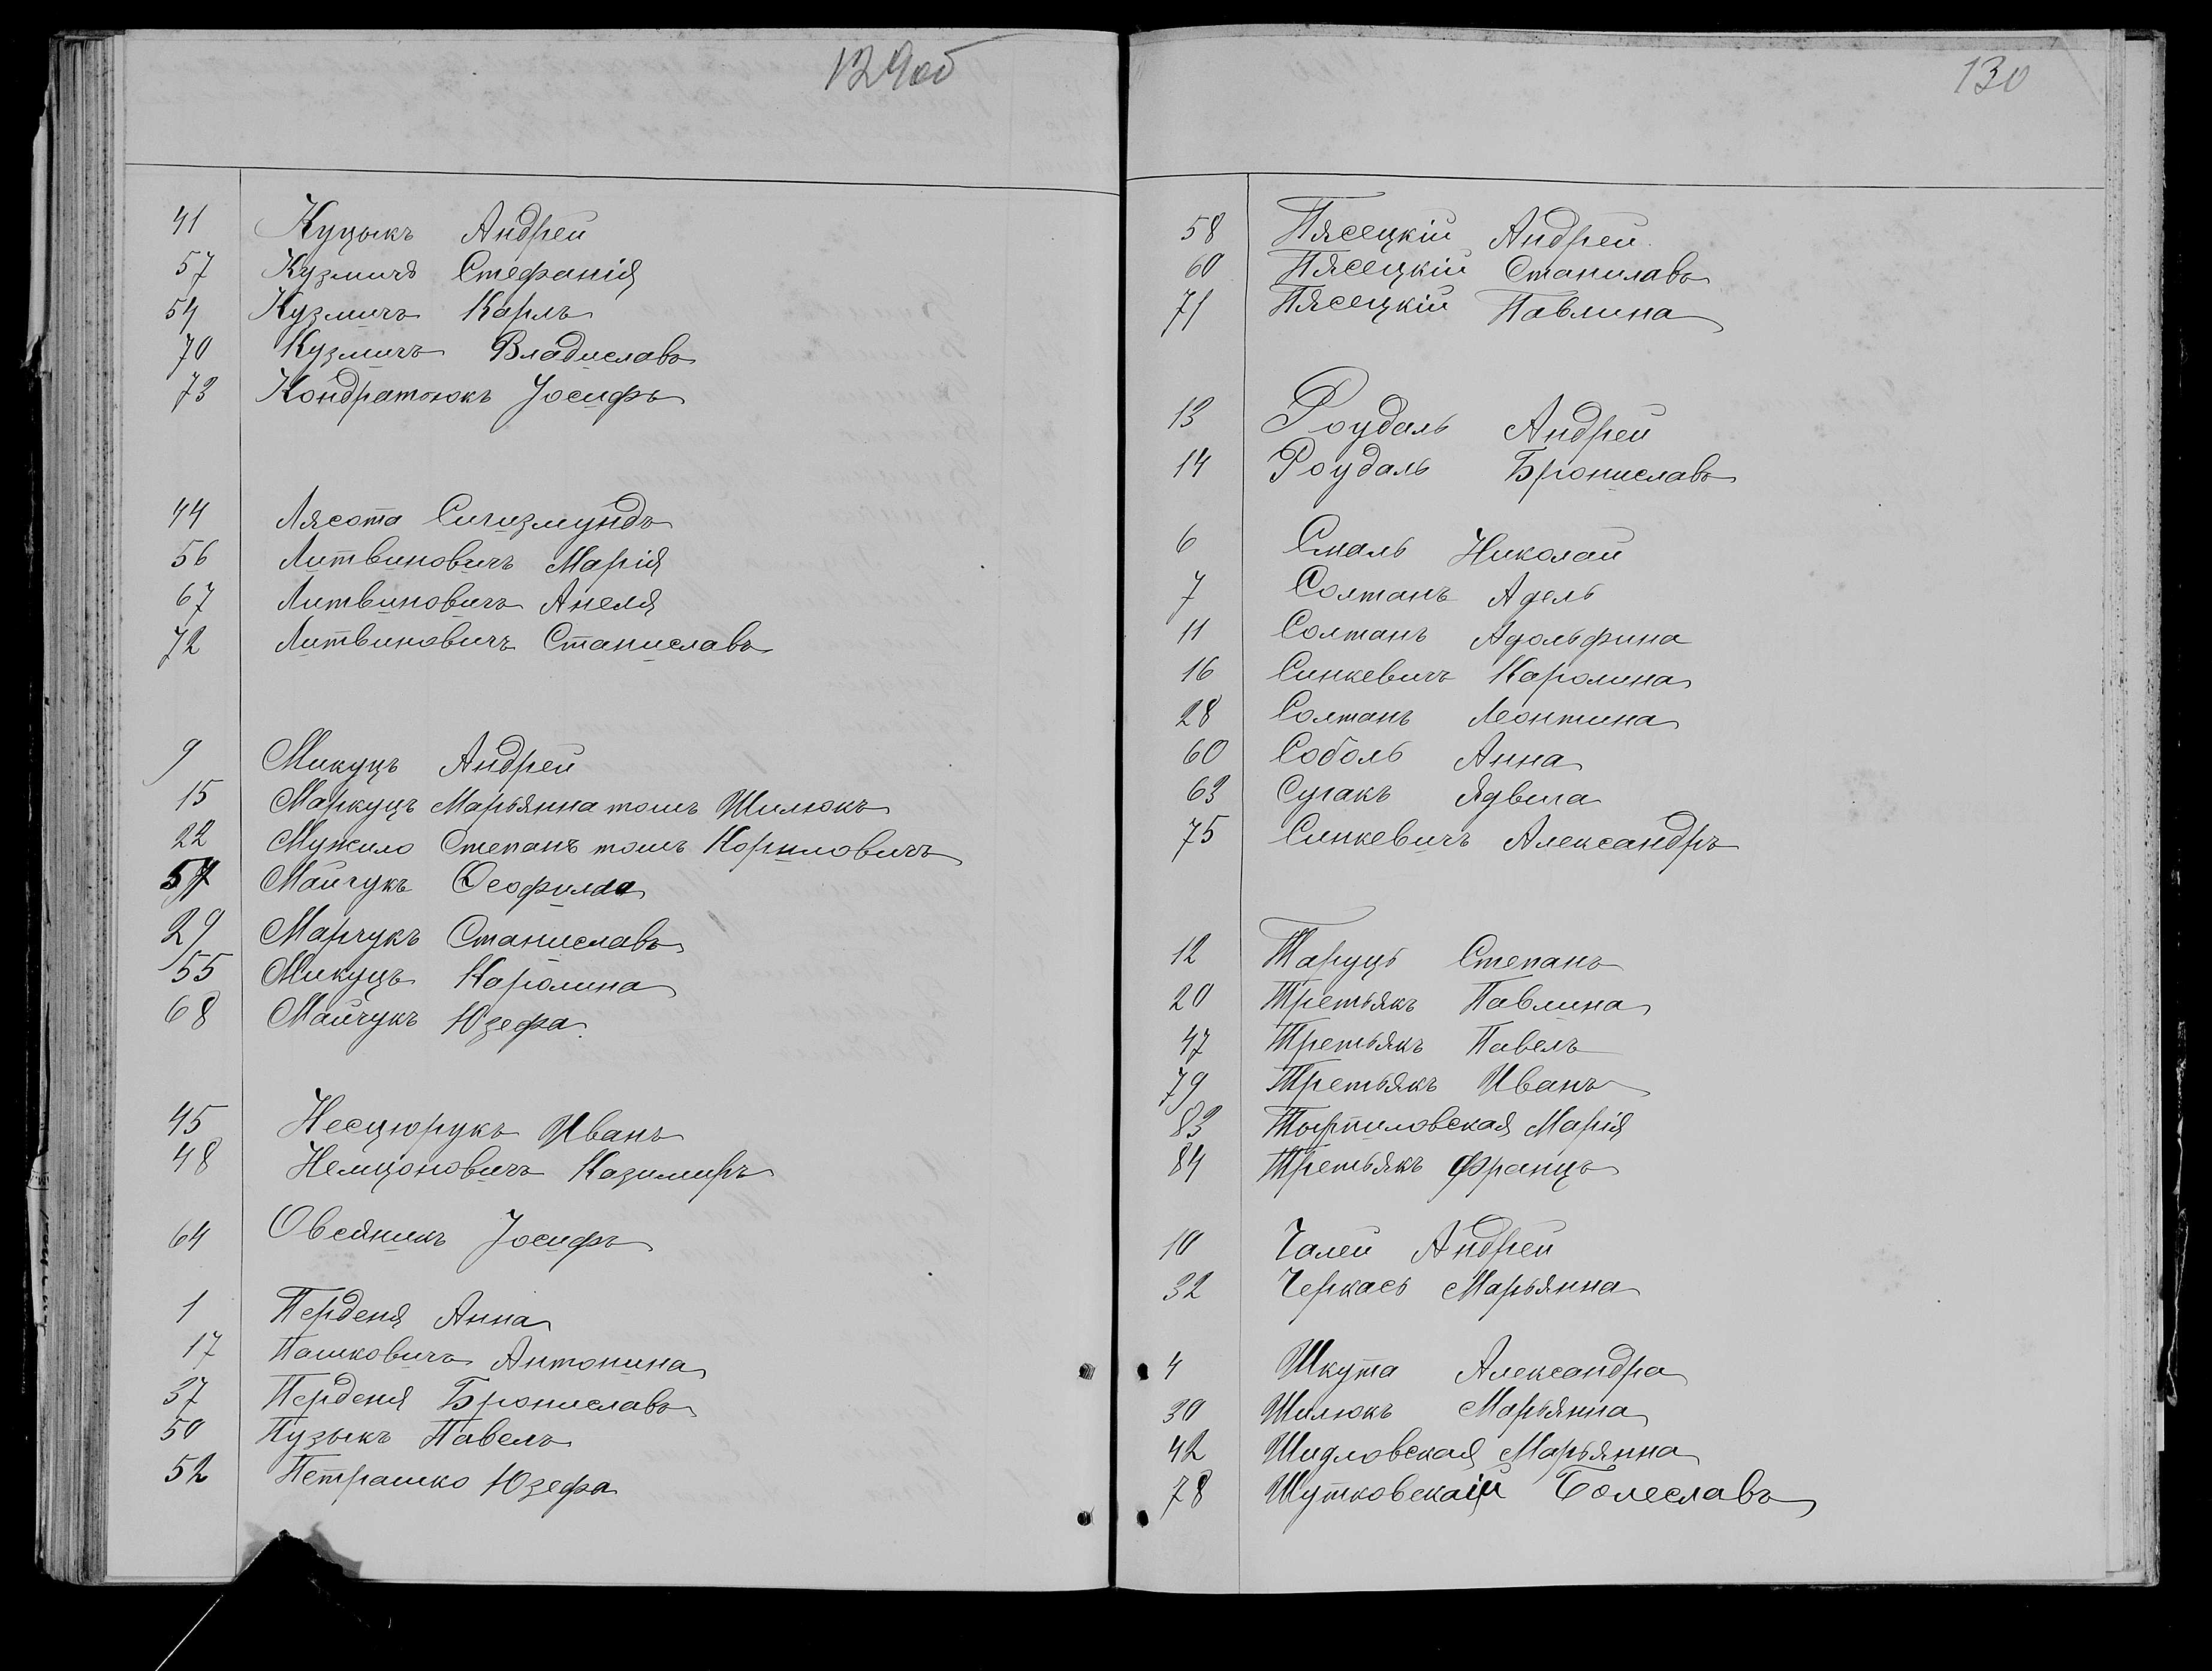 129об
41 Куцыкъ Андрей
57 Кузмичъ Стефанія
54 Кузмичъ Карлъ
70 Кузмичъ Владиславъ
73 Кондратюкъ Іосифъ
44 Лясота Сигизмундъ
56 Литвиновичъ Марія
67 Литвиновичъ Анеля
72 Литвиновичъ Станиславъ
9 Микуць Андрей
15 Маркуць Марьянна тожъ Шилюкъ
22 Мужило Степанъ тожъ Корниловичъ
57 Майчукъ Ѳеофилда
29 Марчукъ Станиславъ
55 Микуць Каролина
68 Майчукъ Юзефа
45 Несцюрукъ Иванъ
48 Немцоновичъ Казимиръ
64 Овсяникъ Іосифъ
1 Перденя Анна
17 Пашковичъ Антонина
37 Перденя Брониславъ
50 Пузыкъ Павелъ
52 Петрашко Юзефа
130
58 Пясецкій Андрей
60 Пясецкій Станилавъ
71 Пясецкій Павлина
13 Роудаль Андрей
14 Роудаль Брониславъ
6 Смаль Николай
7 Солтанъ Адель
11 Солтанъ Адольфина
16 Синкевичъ Каролина
28 Солтанъ Леонтина
60 Соболь Анна
63 Сугакъ Ядвига
75 Синкевичъ Александръ
12 Таруць Степанъ
20 Третьякъ Павлина
47 Третьякъ Павелъ
79 Третьякъ Иванъ
83 Тортиловская Марія
84 Третьякъ Францъ
10 Чалей Андрей
32 Черкась Марьянна
4 Шкута Александра
30 Шилюкъ Марьянна
42 Шидловская Марьянна
78 Шутковскаій Болеславъ